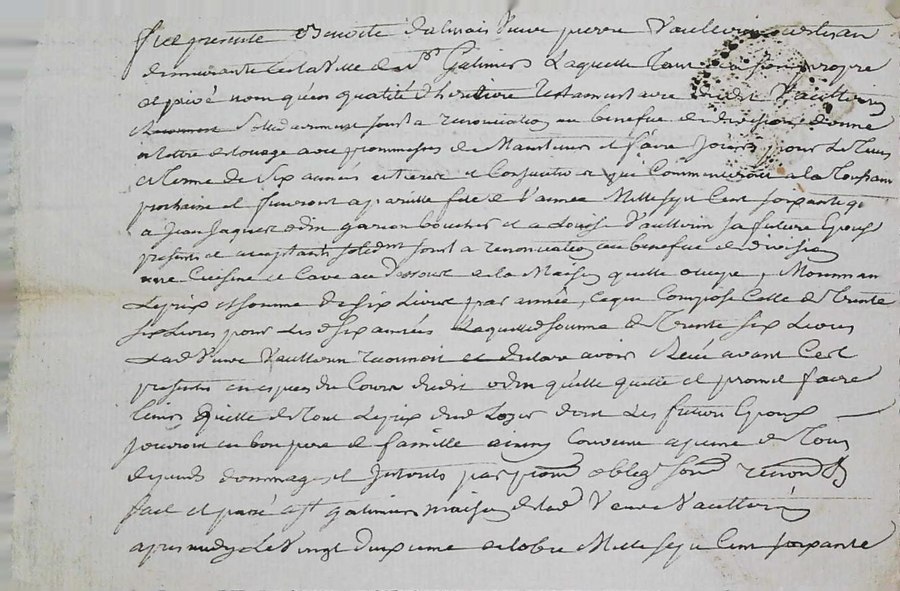 fut presente Benoite Dalmais Veuve pierre Vaultorin artisan
demeurante en la Ville de St Galmier Laquelle tant en son propre
et privé nom qu'en qualité d'heritiere testamentaire dudt Vaultorin
solidairement sous la renonciation au benefice de division donne
a titre de louage avec promesses de Maintenir et faire Jouir pour le temps
et terme de Six années entieres et Consecutives qui Commenceront a la toussaint
prochaine et finiront a pareille fete de l'année Mille sept Cent soixante
a Jean Jaques odin garcon boucher et a Louise Vaultorin sa future Epouse
presents et acceptants solidmt sous la renonciation au benefice de division
une Cuisine et Cave au dessous de la Maison quelle occupe, Moyennant
Le prix et somme de Six Livres par année, ce qui Compose Celle de trente
six Livres pour Les dSix années Laquelle somme de trente six Livres
Lad Veuve Vaultorin reconnoit et declare avoir Receu avant Ces
presentes en especes du Cours dudit odin qu'elle quitte et promet faire
tenir Quitte de tout Le prix dud Loyer dont Les futurs Epoux
jouiront en bon pere de famille ainsy Convenu a peine de tous
depends dommages et Interets par promes oblig soum renonc &
fait et passé a St galmier maison de lad Veuve Vaultorin
apres midy Le Vingt deuxieme octobre Mille sept Cent soixante